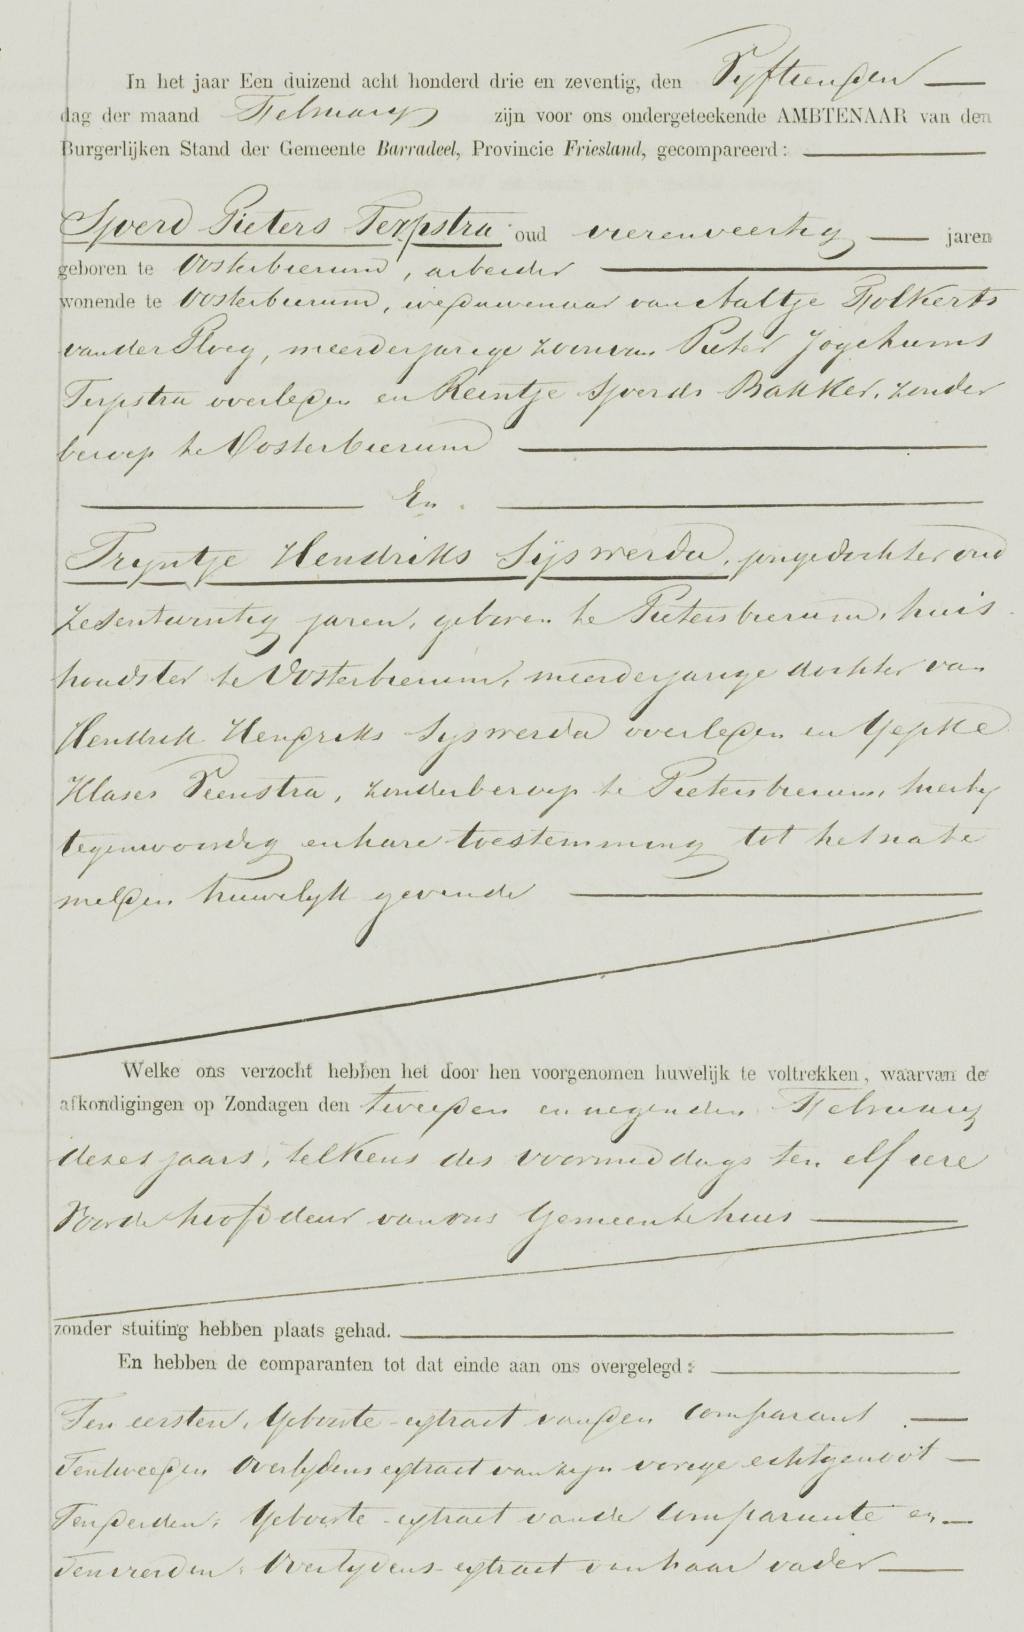 In het jaar Een duizend acht honderd drie en zeventig, den Vyftienden
dag der maand February zijn voor ons ondergeteekende AMBTENAAR van den
Burgerlijken Stand der Gemeente Barradeel, Provincie Friesland, gecompareerd:
Sjoerd Pieters Terpstra oud vierenveertig jaren
geboren te Oosterbierum, arbeider
wonende te Oosterbierum, weduwenaar van Aaltje Folkerts
van der Ploeg, meerderjarige zoon van Pieter Jogchums
Terpstra overleden en Reintje Sjoerds Bakker, zonder
beroep te Oosterbierum
En
Tryntje Hendriks Sijswerda, jongedochter oud
zesentwintig jaren, geboren te Pietersbierum, huis
houdster te Oosterbierum, meerderjarige dochter van
Hendrik Hendriks Sijswerda overleden en Yepke
Klases Veenstra, zonder beroep te Pietersbierum, hierby
tegenwoordig en hare toestemming tot het na te
melden huwelyk gevende
Welke ons verzocht hebben het door hen voorgenomen huwelijk te voltrekken, waarvan de
afkondigingen op Zondagen den tweeden en negenden February
dezes jaars, telkens des voormiddags ten elf ure
Voor de hoofddeur van ons Gemeentehuis
zonder stuiting hebben plaats gehad.
En hebben de comparanten tot dat einde aan ons overgelegd:
Ten eersten, Geboorte-extract van den Comparant
Ten tweeden Overlydens extract van zyn vorige echtgenoot
Ten derden, Geboorte-extract van de Comparante en
Ten vierden, Overlydens-extract van haar vader